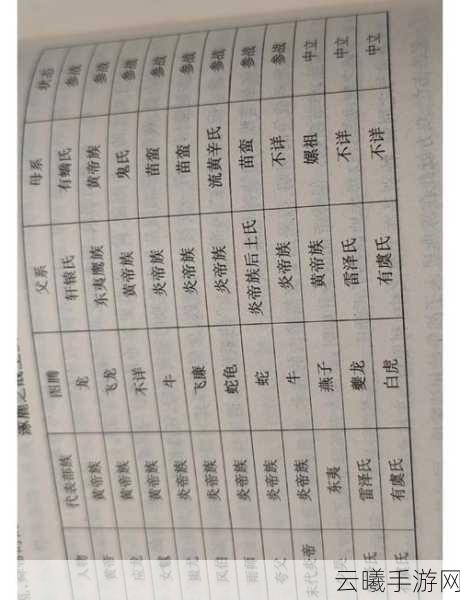 涿鹿之战
人物 代表部族 图腾 父系 母系 状态
黄帝 黄帝族 龙 轩辕氏 有蟜氏 参战
应龙 黄帝族 飞龙 东夷鹰族 黄帝族 参战
女魃 黄帝族 不详 黄帝族 鬼氏 参战
蚩尤 炎帝族 牛 炎帝族 苗蛮 参战
风伯 炎帝族 飞廉 炎帝族 苗蛮 参战
雨师 炎帝族 蛇龟 炎帝族 流黄辛氏 参战
夸父 炎帝族 蛇 炎帝族后土氏 苗蛮 参战
末代炎帝 炎帝族 牛 炎帝族 不详 参战
东夷 燕子 黄帝族 嫘祖 中立
雷泽氏 夔龙 雷泽氏 不详 中立
有虞氏 白虎 有虞氏 不详 中立
云曦手游网